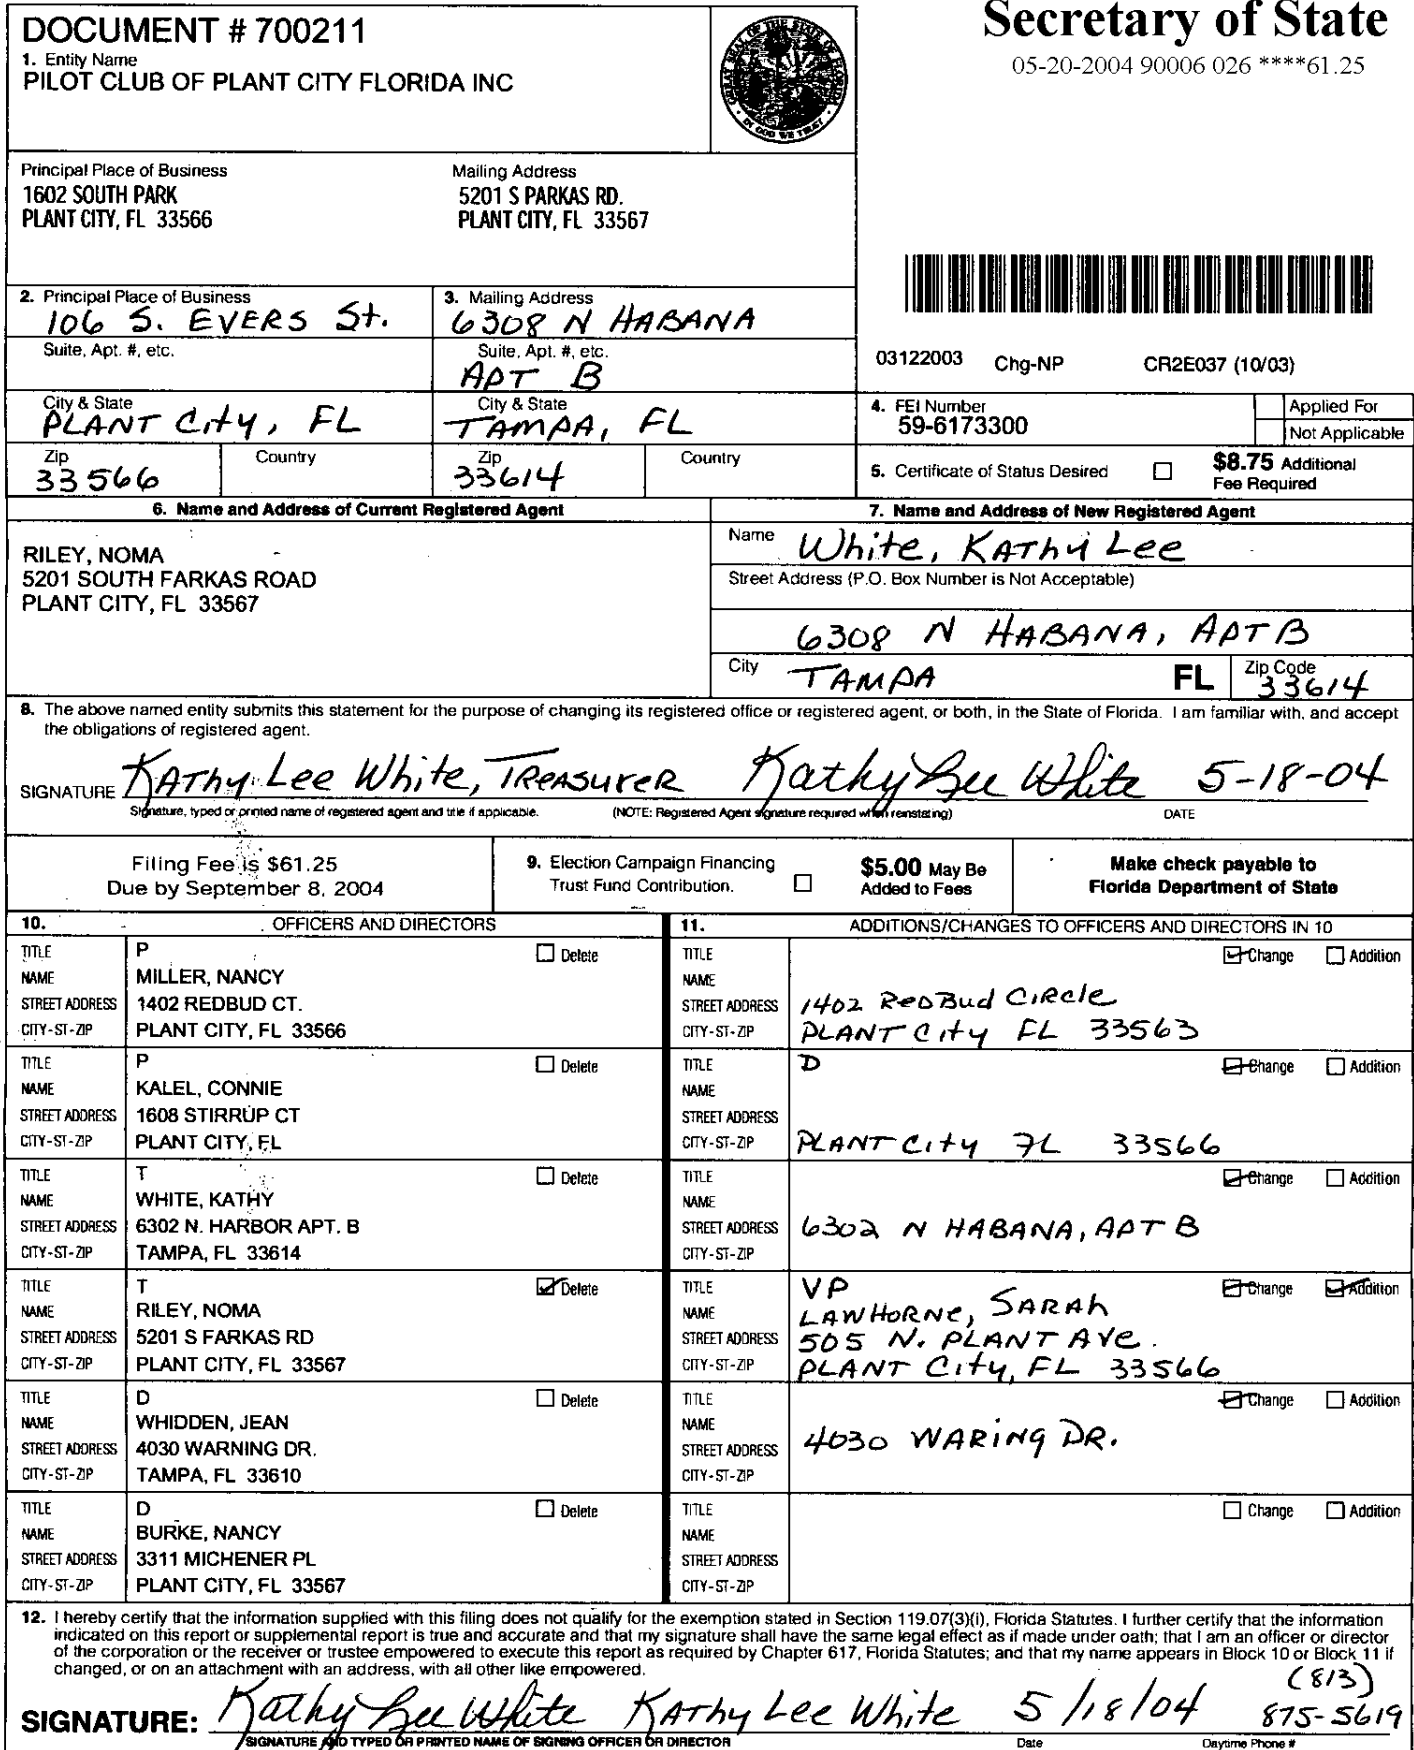 DOCUMENT # 700211
1. Entity Name
PILOT CLUB OF PLANT CITY FLORIDA INC
Secretary of State
05-20-2004 90006 026 ****61.25
Principal Place of Business
1602 SOUTH PARK
PLANT CITY, FL 33566
Mailing Address
5201 S PARKAS RD.
PLANT CITY, FL 33567
2. Principal Place of Business
106 S. EVERS St.
3. Mailing Address
6308 N HABANA
Suite, Apt. #, etc.
Suite, Apt. #, etc.
APT B
City & State
PLANT City, FL
City & State
TAMPA, FL
Zip
33566
Country
Zip
33614
Country
03122003 Chg-NP CR2E037 (10/03)
4. FEI Number
59-6173300
Applied For
Not Applicable
5. Certificate of Status Desired
$8.75 Additional
Fee Required
6. Name and Address of Current Registered Agent
RILEY, NOMA
5201 SOUTH FARKAS ROAD
PLANT CITY, FL 33567
7. Name and Address of New Registered Agent
Name White, KAThy Lee
Street Address (P.O. Box Number is Not Acceptable)
6308 N HABANA, APT B
City TAMPA FL Zip Code 33614
8. The above named entity submits this statement for the purpose of changing its registered office or registered agent, or both, in the State of Florida. I am familiar with, and accept
the obligations of registered agent.
SIGNATURE KAThy Lee White, TReASureR Kathy Lee White 5-18-04
Signature, typed or printed name of registered agent and title if applicable. (NOTE: Registered Agent signature required when reinstating) DATE
Filing Fee is $61.25
Due by September 8, 2004
9. Election Campaign Financing
Trust Fund Contribution.
$5.00 May Be
Added to Fees
Make check payable to
Florida Department of State
10. OFFICERS AND DIRECTORS
11. ADDITIONS/CHANGES TO OFFICERS AND DIRECTORS IN 10
TITLE P Delete
NAME MILLER, NANCY
STREET ADDRESS 1402 REDBUD CT.
CITY-ST-ZIP PLANT CITY, FL 33566
TITLE Change Addition
NAME
STREET ADDRESS 1402 RedBud CiRcle
CITY-ST-ZIP PLANT City FL 33563
TITLE P Delete
NAME KALEL, CONNIE
STREET ADDRESS 1608 STIRRUP CT
CITY-ST-ZIP PLANT CITY, FL
TITLE D Change Addition
NAME
STREET ADDRESS
CITY-ST-ZIP PLANT City FL 33566
TITLE T Delete
NAME WHITE, KATHY
STREET ADDRESS 6302 N. HARBOR APT. B
CITY-ST-ZIP TAMPA, FL 33614
TITLE Change Addition
NAME
STREET ADDRESS 6302 N HABANA, APT B
CITY-ST-ZIP
TITLE T Delete
NAME RILEY, NOMA
STREET ADDRESS 5201 S FARKAS RD
CITY-ST-ZIP PLANT CITY, FL 33567
TITLE VP Change Addition
NAME LAWHORNe, SARAh
STREET ADDRESS 505 N. PLANT AVe.
CITY-ST-ZIP PLANT City, FL 33566
TITLE D Delete
NAME WHIDDEN, JEAN
STREET ADDRESS 4030 WARNING DR.
CITY-ST-ZIP TAMPA, FL 33610
TITLE Change Addition
NAME
STREET ADDRESS 4030 WARiNg DR.
CITY-ST-ZIP
TITLE D Delete
NAME BURKE, NANCY
STREET ADDRESS 3311 MICHENER PL
CITY-ST-ZIP PLANT CITY, FL 33567
TITLE Change Addition
NAME
STREET ADDRESS
CITY-ST-ZIP
12. I hereby certify that the information supplied with this filing does not qualify for the exemption stated in Section 119.07(3)(i), Florida Statutes. I further certify that the information
indicated on this report or supplemental report is true and accurate and that my signature shall have the same legal effect as if made under oath; that I am an officer or director
of the corporation or the receiver or trustee empowered to execute this report as required by Chapter 617, Florida Statutes; and that my name appears in Block 10 or Block 11 if
changed, or on an attachment with an address, with all other like empowered.
(813)
SIGNATURE: Kathy Lee White KAThy Lee White 5/18/04 875-5619
SIGNATURE AND TYPED OR PRINTED NAME OF SIGNING OFFICER OR DIRECTOR Date Daytime Phone #